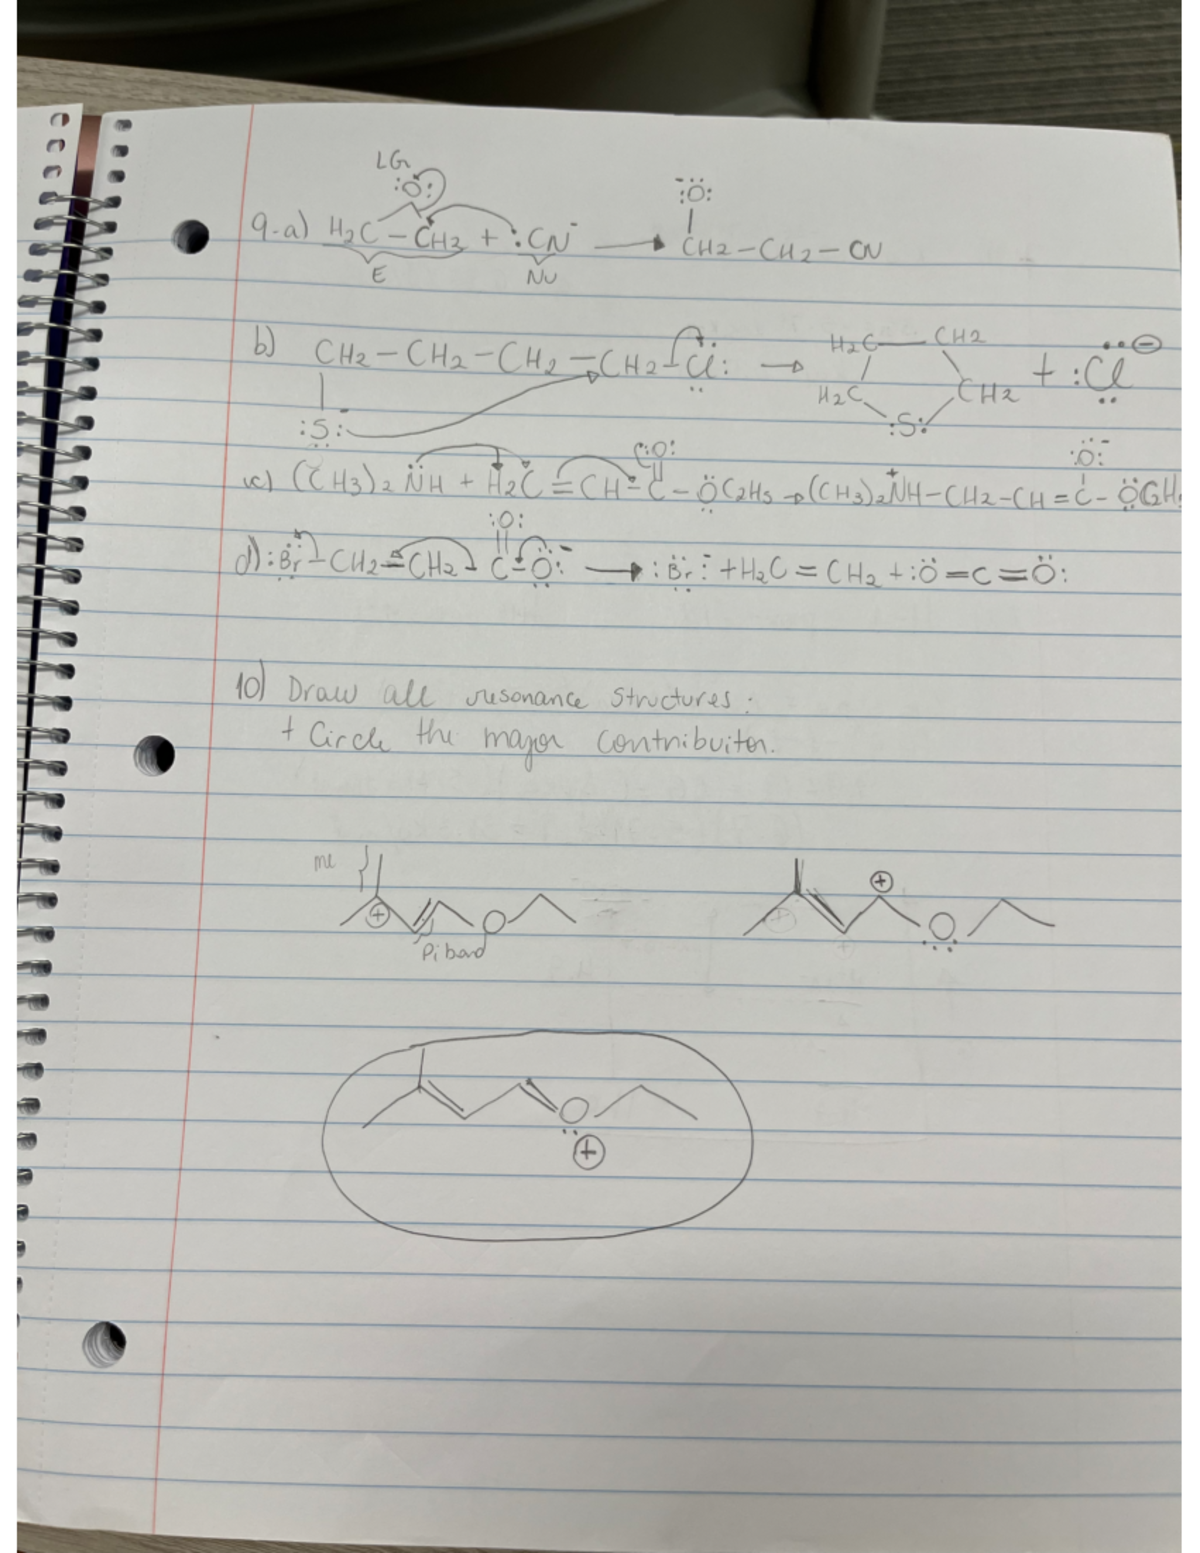 LG
:Ö:
⁻:Ö:
9.a) H2C – CH2 + :CN⁻ → CH2 – CH2 – CN
E Nu
b) CH2 – CH2 – CH2 – CH2 – Cl: → H2C – CH2 + :Cl ⊖
H2C CH2
:S:⁻ :S:
:O: :Ö:⁻
c) (CH3)2 N̈H + H2C = CH – C – ÖC2H5 → (CH3)2 N⁺H – CH2 – CH = C – ÖC2H5
:O:
d) :Br – CH2 – CH2 – C – O:⁻ → :Br:⁻ + H2C = CH2 + :Ö = C = Ö:
10) Draw all resonance structures:
+ Circle the major contribuiter.
me
⊕ O ⊕ O
Pi bond
O
⊕